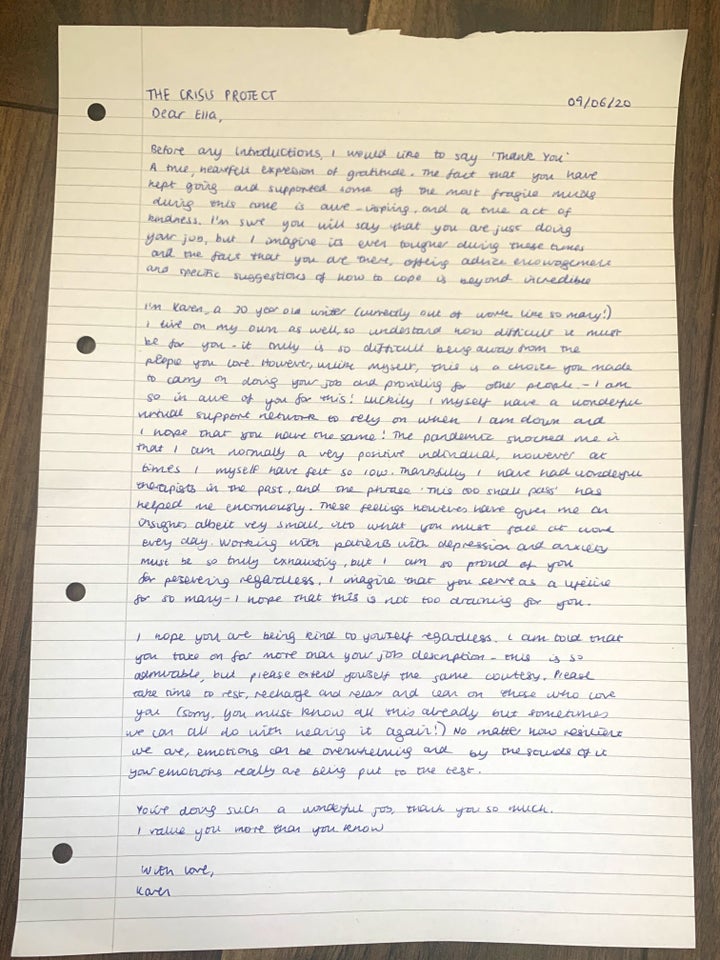 THE CRISIS PROJECT
09/06/20
Dear Ella,
Before any introductions, I would like to say 'Thank You'
A true, heartfelt expression of gratitude. The fact that you have
kept going and supported some of the most fragile minds
during this time is awe-inspiring, and a true act of
kindness. I'm sure you will say that you are just doing
your job, but I imagine its even tougher during these times
and the fact that you are there, offering advice encouragement
and specific suggestions of how to cope is beyond incredible
I'm Karen, a 30 year old writer (currently out of work like so many!)
I live on my own as well, so understand how difficult it must
be for you - it truly is so difficult being away from the
people you love. However, unlike myself, this is a choice you made
to carry on doing your job and providing for other people. - I am
so in awe of you for this! Luckily I myself have a wonderful
virtual support network to rely on when I am down and
I hope that you have the same! The pandemic shocked me in
that I am normally a very positive individual, however at
times I myself have felt so low. Thankfully I have had wonderful
therapists in the past, and the phrase 'This too shall pass' has
helped me enormously. These feelings however have given me an
insight, albeit very small, into what you must face at work
every day. Working with patients with depression and anxiety
must be so truly exhausting, but I am so proud of you
for persevering regardless. I imagine that you serve as a lifeline
for so many - I hope that this is not too draining for you.
I hope you are being kind to yourself regardless. I am told that
you take on far more than your job description - this is so
admirable, but please extend yourself the same courtesy. Please
take time to rest, recharge and relax and lean on those who love
you (sorry, you must know all this already but sometimes
we can all do with hearing it again!) No matter how resilient
we are, emotions can be overwhelming and by the sounds of it
your emotions really are being put to the test.
You're doing such a wonderful job, thank you so much.
I value you more than you know
With love,
Karen